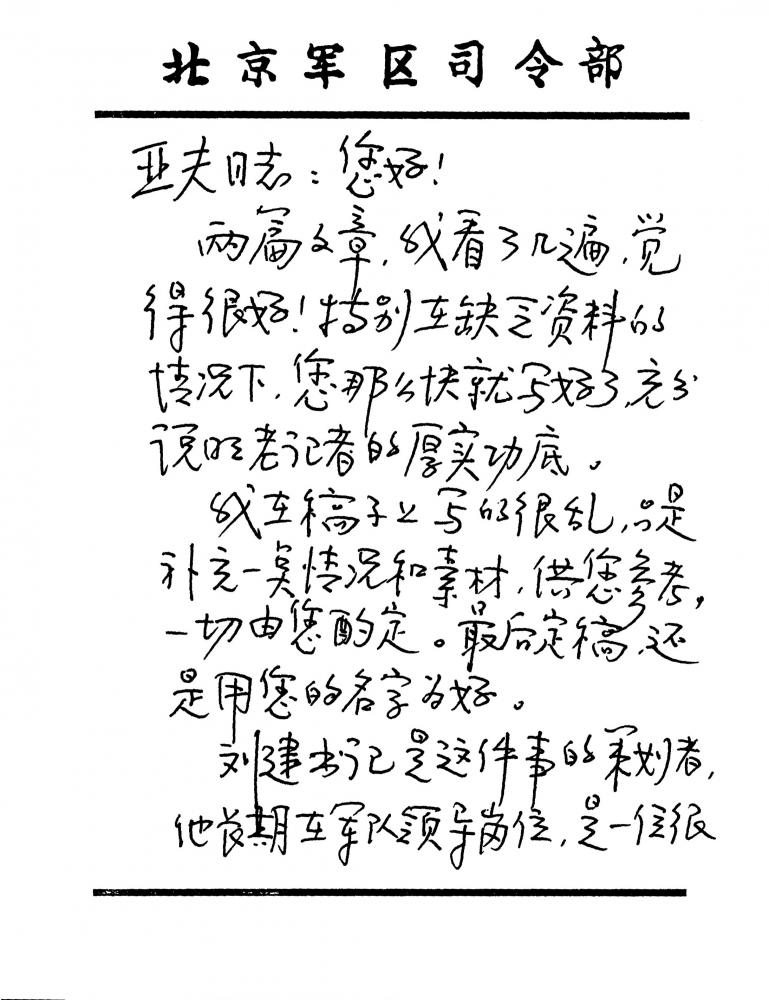 北京军区司令部
亚夫同志：您好！
两篇文章，我看了几遍，觉
得很好！特别在缺乏资料的
情况下，您那么快就写好了，充分
说明老记者的厚实功底。
我在稿子上写的很乱，只是
补充一些情况和素材，供您参考，
一切由您酌定。最后定稿，还
是用您的名字为好。
刘建书记是这件事的策划者，
他长期在军队领导岗位，是一位很